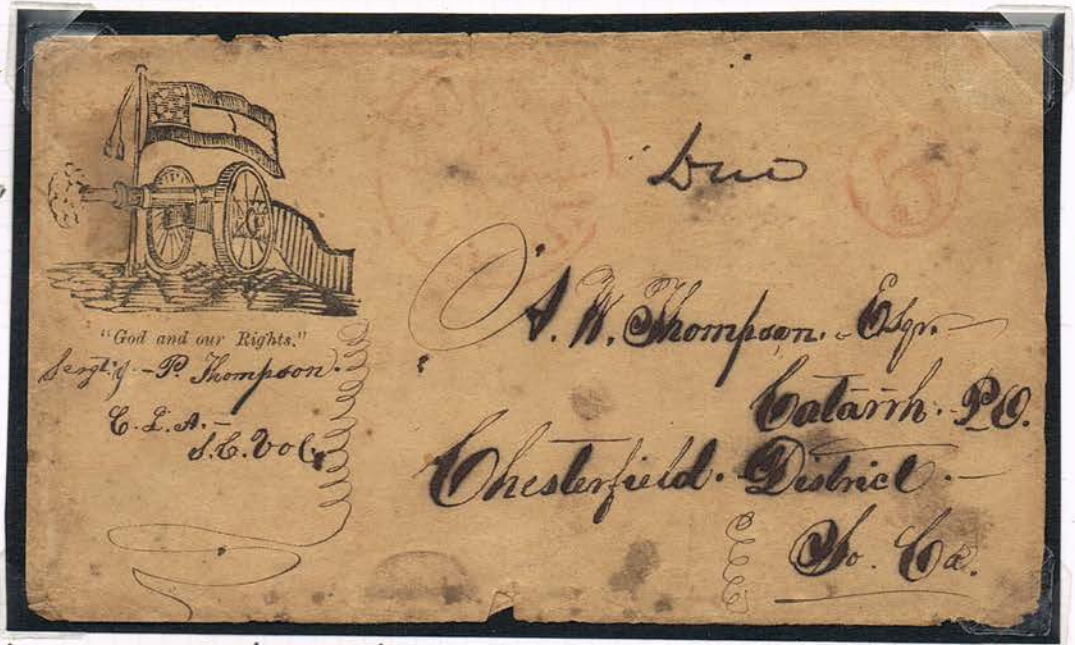 Due
5
"God and our Rights."
Sergt. J. - P. Thompson.
C. L. A. -
S. C. Vol.
A. W. Thompson. Esqr.
Catarrh. P.O.
Chesterfield. District.
So. Ca.